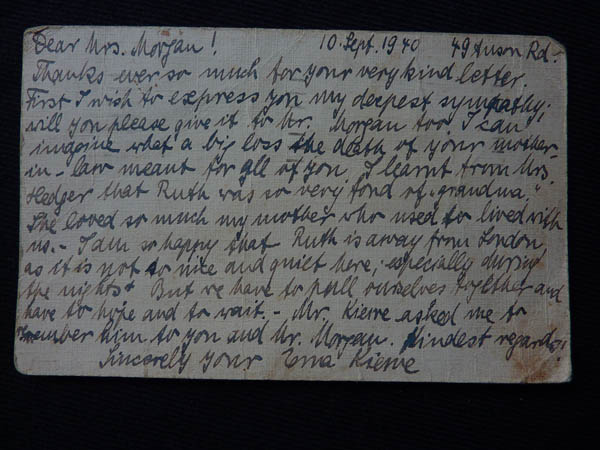 Dear Mrs. Morgan! 10. Sept. 1940 49 Anson Rd.
Thanks ever so much for your very kind letter.
First I wish to express you my deepest sympathy;
will you please give it to Mr. Morgan too. I can
imagine what a big loss the death of your mother-
in-law meant for all of you. I learnt from Mrs.
Hedger that Ruth was so very fond of „grandma."
She loved so much my mother who used to lived with
us. - I am so happy that Ruth is away from London,
as it is not so nice and quiet here, especially during
the nights. But we have to pull ourselves together and
have to hope and to wait. - Mr. Kiewe asked me to
remember him to you and Mr. Morgan. Kindest regards!
Sincerely your Erna Kiewe